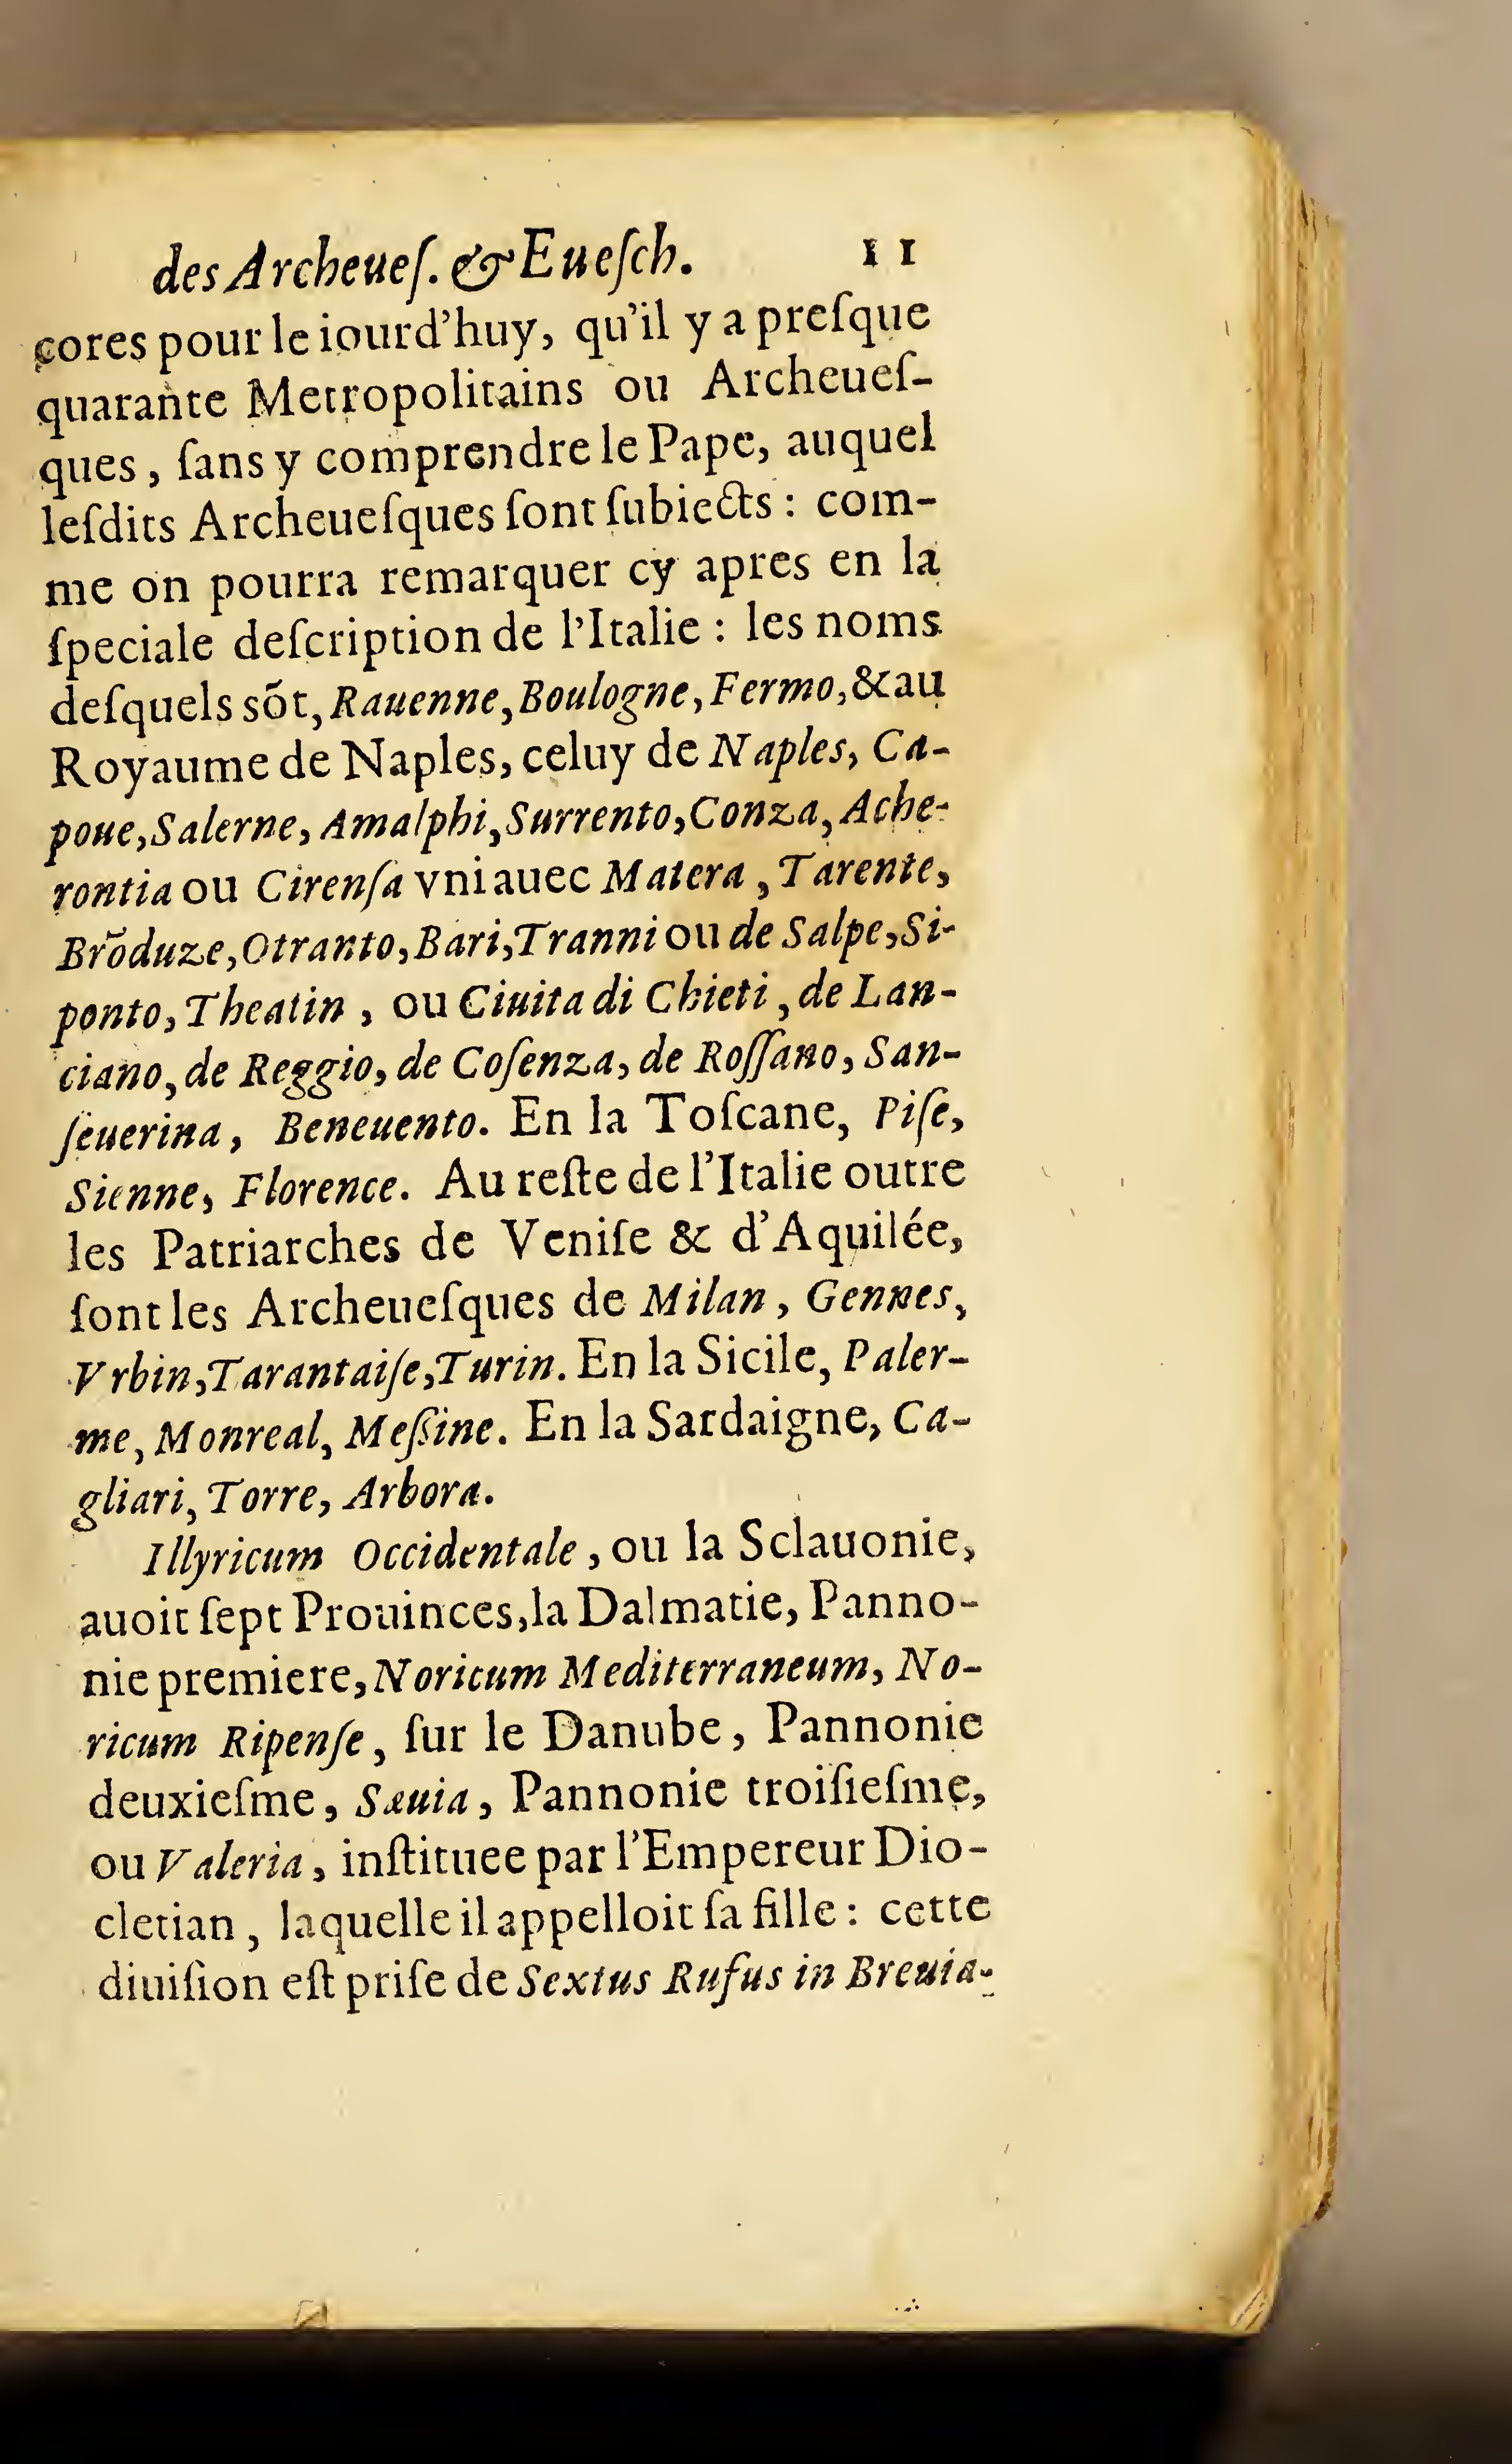 des Archeueſ. & Eueſch. 11
cores pour le iourd'huy, qu'il y a preſque
quarante Metropolitains ou Archeueſ-
ques, ſans y comprendre le Pape, auquel
leſdits Archeueſques ſont ſubiects : com-
me on pourra remarquer cy apres en la
ſpeciale deſcription de l'Italie : les noms
deſquels sõt, Rauenne, Boulogne, Fermo, & au
Royaume de Naples, celuy de Naples, Ca-
poue, Salerne, Amalphi, Surrento, Conza, Ache-
rontia ou Cirenſa vni auec Matera, Tarente,
Brõduze, Otranto, Bari, Tranni ou de Salpe, Si-
ponto, Theatin, ou Ciuita di Chieti, de Lan-
ciano, de Reggio, de Coſenza, de Roſſano, San-
ſeuerina, Beneuento. En la Toſcane, Piſe,
Sienne, Florence. Au reſte de l'Italie outre
les Patriarches de Veniſe & d'Aquilée,
ſont les Archeueſques de Milan, Gennes,
Vrbin, Tarantaiſe, Turin. En la Sicile, Paler-
me, Monreal, Meſsine. En la Sardaigne, Ca-
gliari, Torre, Arbora.
Illyricum Occidentale, ou la Sclauonie,
auoit ſept Prouinces, la Dalmatie, Panno-
nie premiere, Noricum Mediterraneum, No-
ricum Ripenſe, ſur le Danube, Pannonie
deuxieſme, Sæuia, Pannonie troiſieſme,
ou Valeria, inſtituee par l'Empereur Dio-
cletian, laquelle il appelloit ſa fille : cette
diuiſion eſt priſe de Sextus Rufus in Breuia-